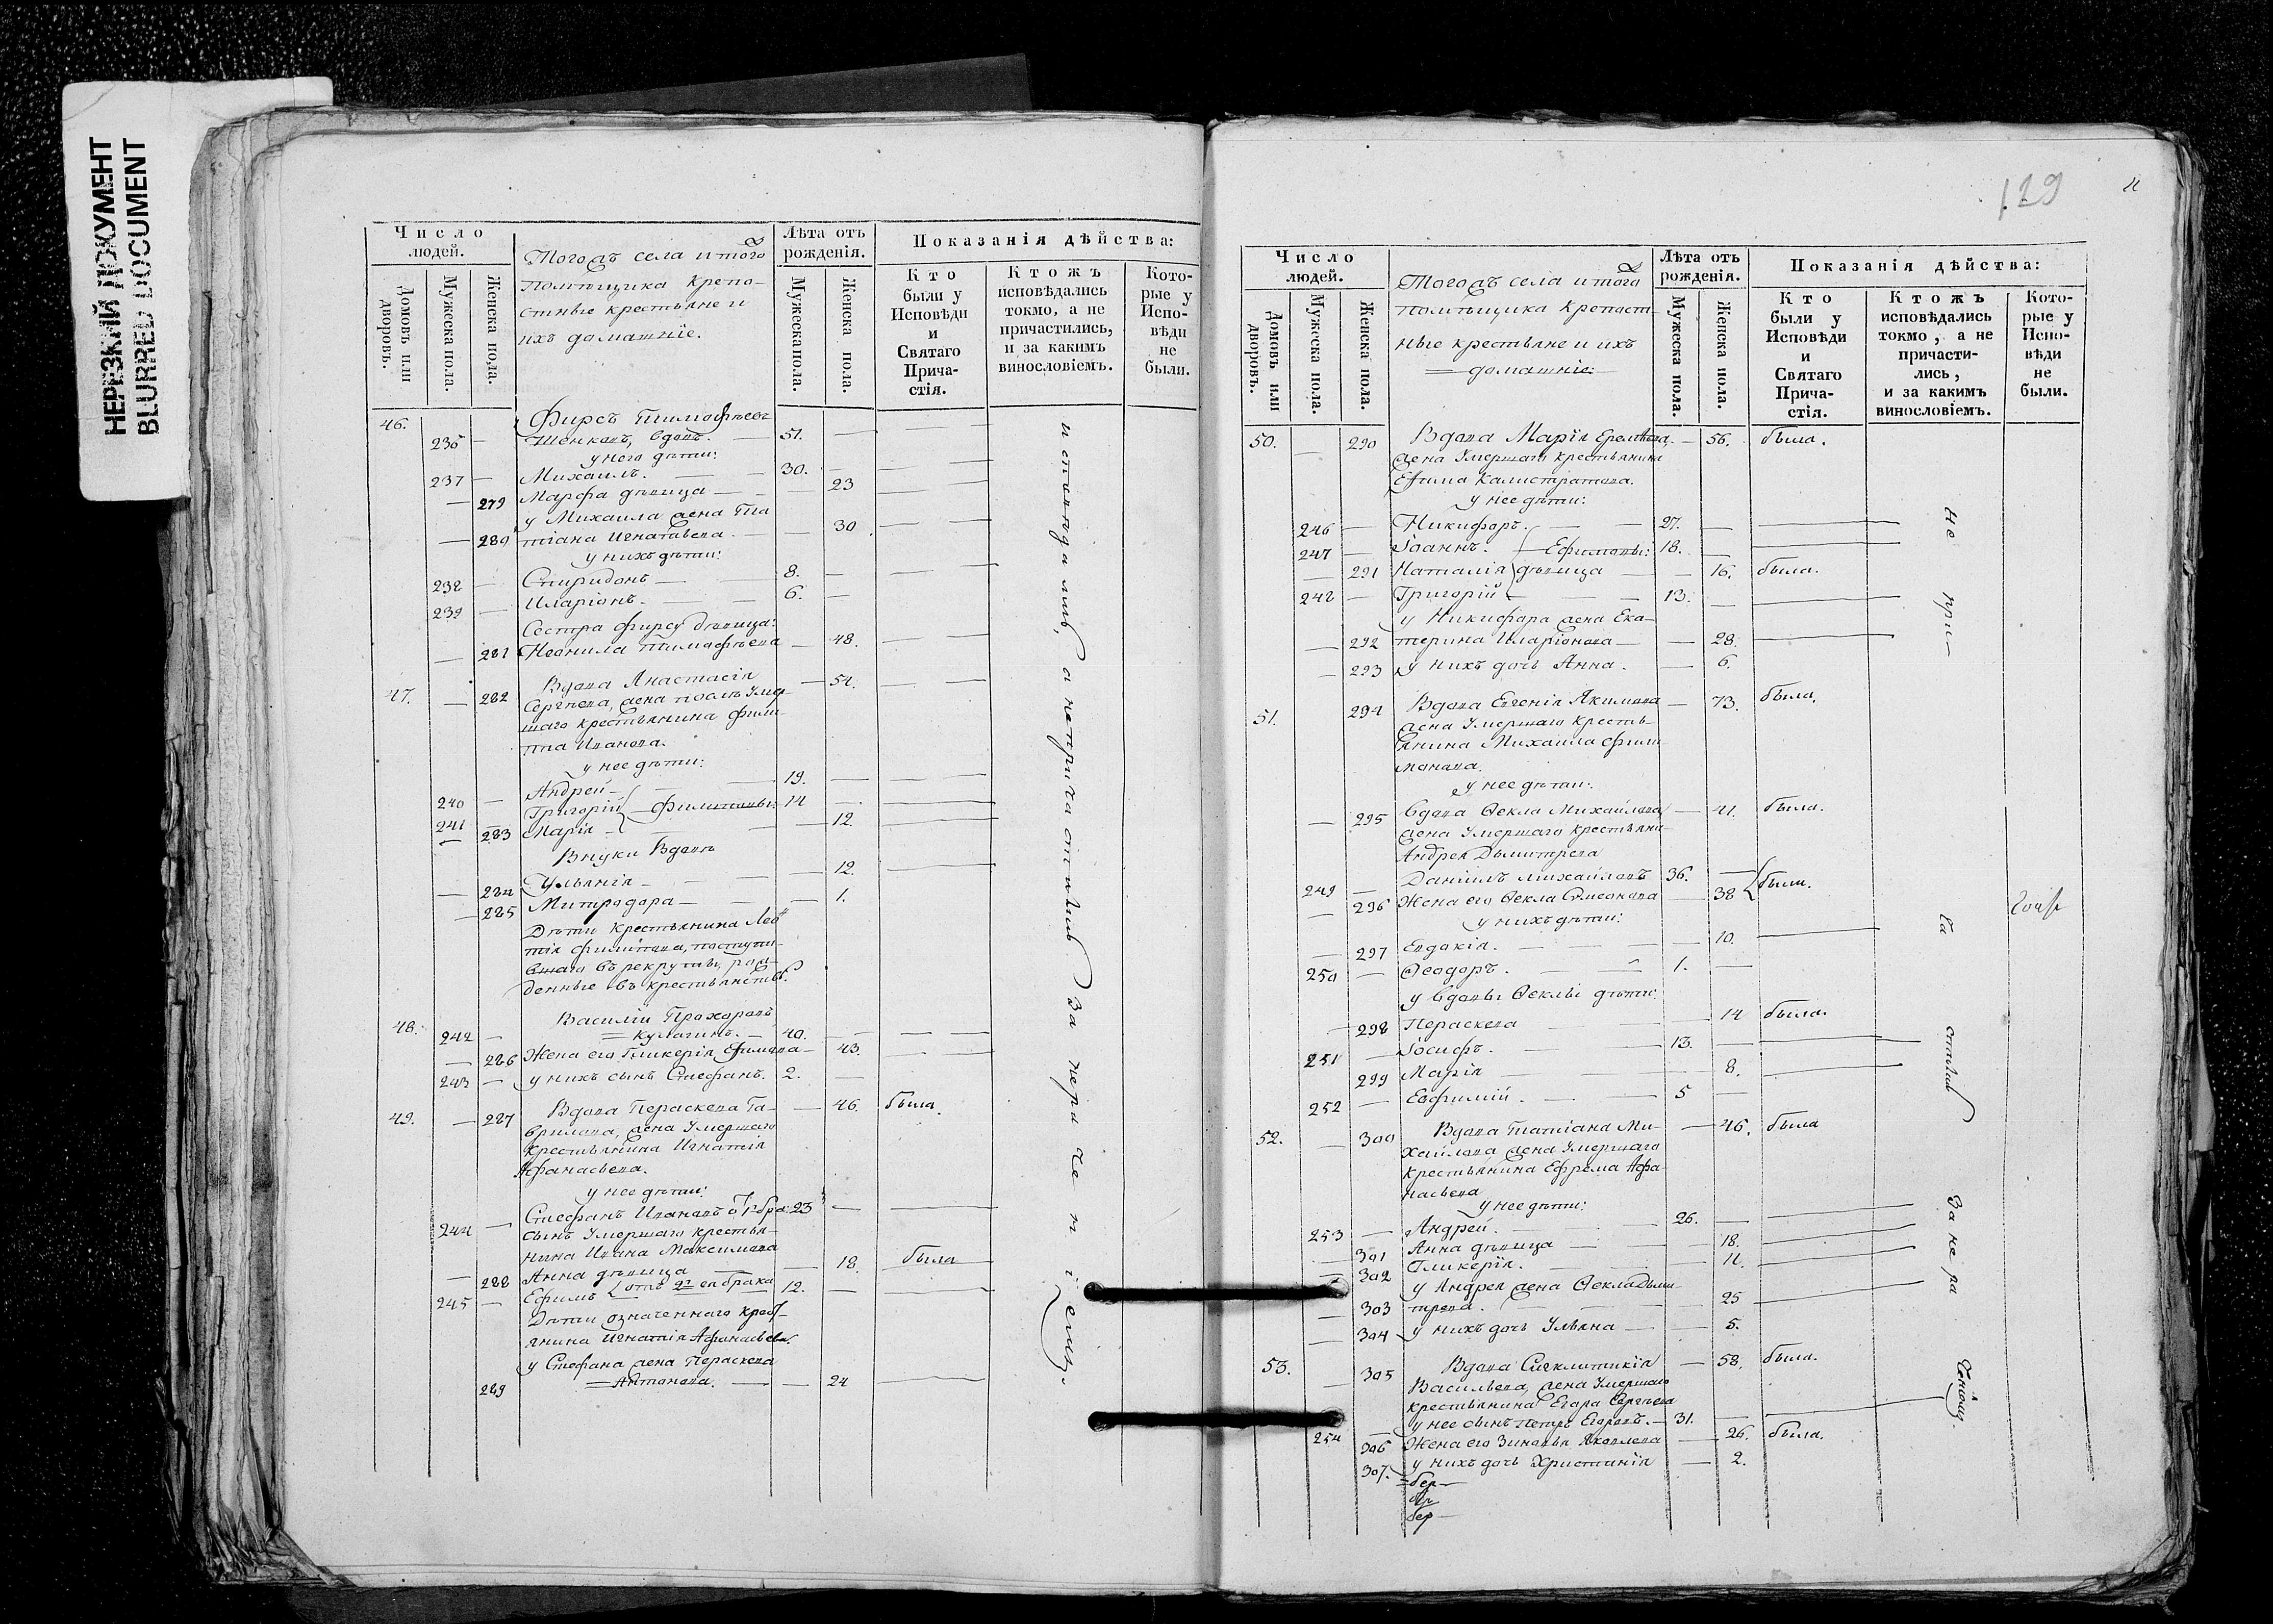 НЕРЕЗКИЙ ДОКУМЕНТ
BLURRED DOCUMENT
Число людей.
Домовъ или дворовъ.
Мужеска пола.
Женска пола.
Тогожъ села и того
помѣщика крепо-
стные крестьяне и
ихъ домашніе.
Лѣта отъ рожденія.
Мужеска пола.
Женска пола.
Показанія дѣйства:
Кто были у Исповѣди и Святаго Причастія.
Ктожъ исповѣдались токмо, а не причастились, и за какимъ винословіемъ.
Которые у Исповѣди не были.
46. Фирсъ Тимофѣевъ
236 — вдовъ. — 51. —
у него дѣти:
237 — Михаилъ. — 30. —
— 279 Марфа дѣвица — — 23
у Михаила жена Та
— 280 тіана Игнатьева. — — 30
у нихъ дѣти:
238 — Спиридонъ — 8. —
239 — Иларіонъ. — 6. —
Сестра Фирсу дѣвица:
— 281 Неонила Тимофѣева — 48.
47. — 282 Вдова Анастасія — 54.
Сергѣева, жена послѣ умер-
шаго крестьянина Фили-
ппа Иванова.
у нее дѣти:
240 — Андрей — 19. —
241 — Григорій Филиповы: 14 —
— 283 Марія — — 12.
Внуки Вдовѣ
— 284 Ульянія — — 12.
— 285 Митродора — — 1.
Дѣти крестьянина Лео
тія Филипова, поступи-
вшаго въ рекруты, рож-
денные въ крестьянствѣ.
48. Василій Прохоровъ
242 — Кулагинъ. — 40. —
— 286 Жена его Гликерія Ефимова — 43.
243 — у нихъ сынъ Стефанъ. 2. —
49. — 287 Вдова Пераскева Га- — 46. была.
врилова, жена умершаго
крестьянина Игнатія
Афанасьева.
у нее дѣти:
244 — Стефанъ Ивановъ 23 —
сынъ умершаго крестья-
нина Ивана Максимова
— 288 Анна дѣвица — — 18. была
245 — Ефимъ отъ 2го ея брака 12. —
Дѣти означеннаго крес
янина Игнатія Афанасьева.
у Стефана жена Пераскева
289 Антонова. — — 24
исповѣдались, а непричастились За нерачепіемъ.
129
Число людей.
Домовъ или дворовъ.
Мужеска пола.
Женска пола.
Тогожъ села и того
помѣщика крепост-
ные крестьяне и ихъ
домашніе:
Лѣта отъ рожденія.
Мужеска пола.
Женска пола.
Показанія дѣйства:
Кто были у Исповѣди и Святаго Причастія.
Ктожъ исповѣдались токмо, а не причастились, и за какимъ винословіемъ.
Которые у Исповѣди не были.
50. — 290 Вдова Марія — 56. была.
жена умершаго крестьянина
Ефима Калистратова.
у нее дѣти:
246 — Никифоръ. — 27. —
247 — Іоаннъ. Ефимовы: 18. —
— 291 Наталія дѣвица — — 16. была.
248 — Григорій — 13. —
у Никифора жена Ека-
— 292 терина Иларіонова — — 28.
— 293 у нихъ дочь Анна. — 6.
51. 294 Вдова Евгенія Акимова — 73. была.
жена умершаго кресть-
янина Михаила Фили-
монова.
у нее дѣти:
— 295 вдова Ѳекла Михайлова — 41. была.
жена умершаго крестьяни-
Андрея Дымитрева
249 — Даніилъ Михайловъ 36. —
— 296 Жена его Ѳекла Симеонова — 38 были.
у нихъ дѣти:
— 297 Евдокія. — — 10.
250 — Ѳеодоръ. — 1. —
у вдовы Ѳеклы дѣти:
— 298 Пераскева — 14 была.
251 — Іосифъ. — 13. —
299 Марія — 8.
252 — Евфимій. — 5 —
52. — 300 Вдова Татіана Ми- — 46. была
хайлова жена умершаго
крестьянина Ефрема Афа-
насьева
у нее дѣти:
253 — Андрей. — 26. —
— 301 Анна дѣвица — — 18.
— 302 Гликерія. — 11.
у Андрея жена Ѳекла Дыми-
— 303 трева. — 25
— 304 у нихъ дочь Ульяна — 5.
53. — 305 Вдова Сигклитикія — 58. была.
Васильева, жена умершаго
крестьянина Егора Сергѣева
254 — у нее сынъ Петръ Егоровъ. — 31. —
306 Жена его Зиновья Яковлева — 26. была.
307. у нихъ дочь Христинія — 2.
не причастились За нера